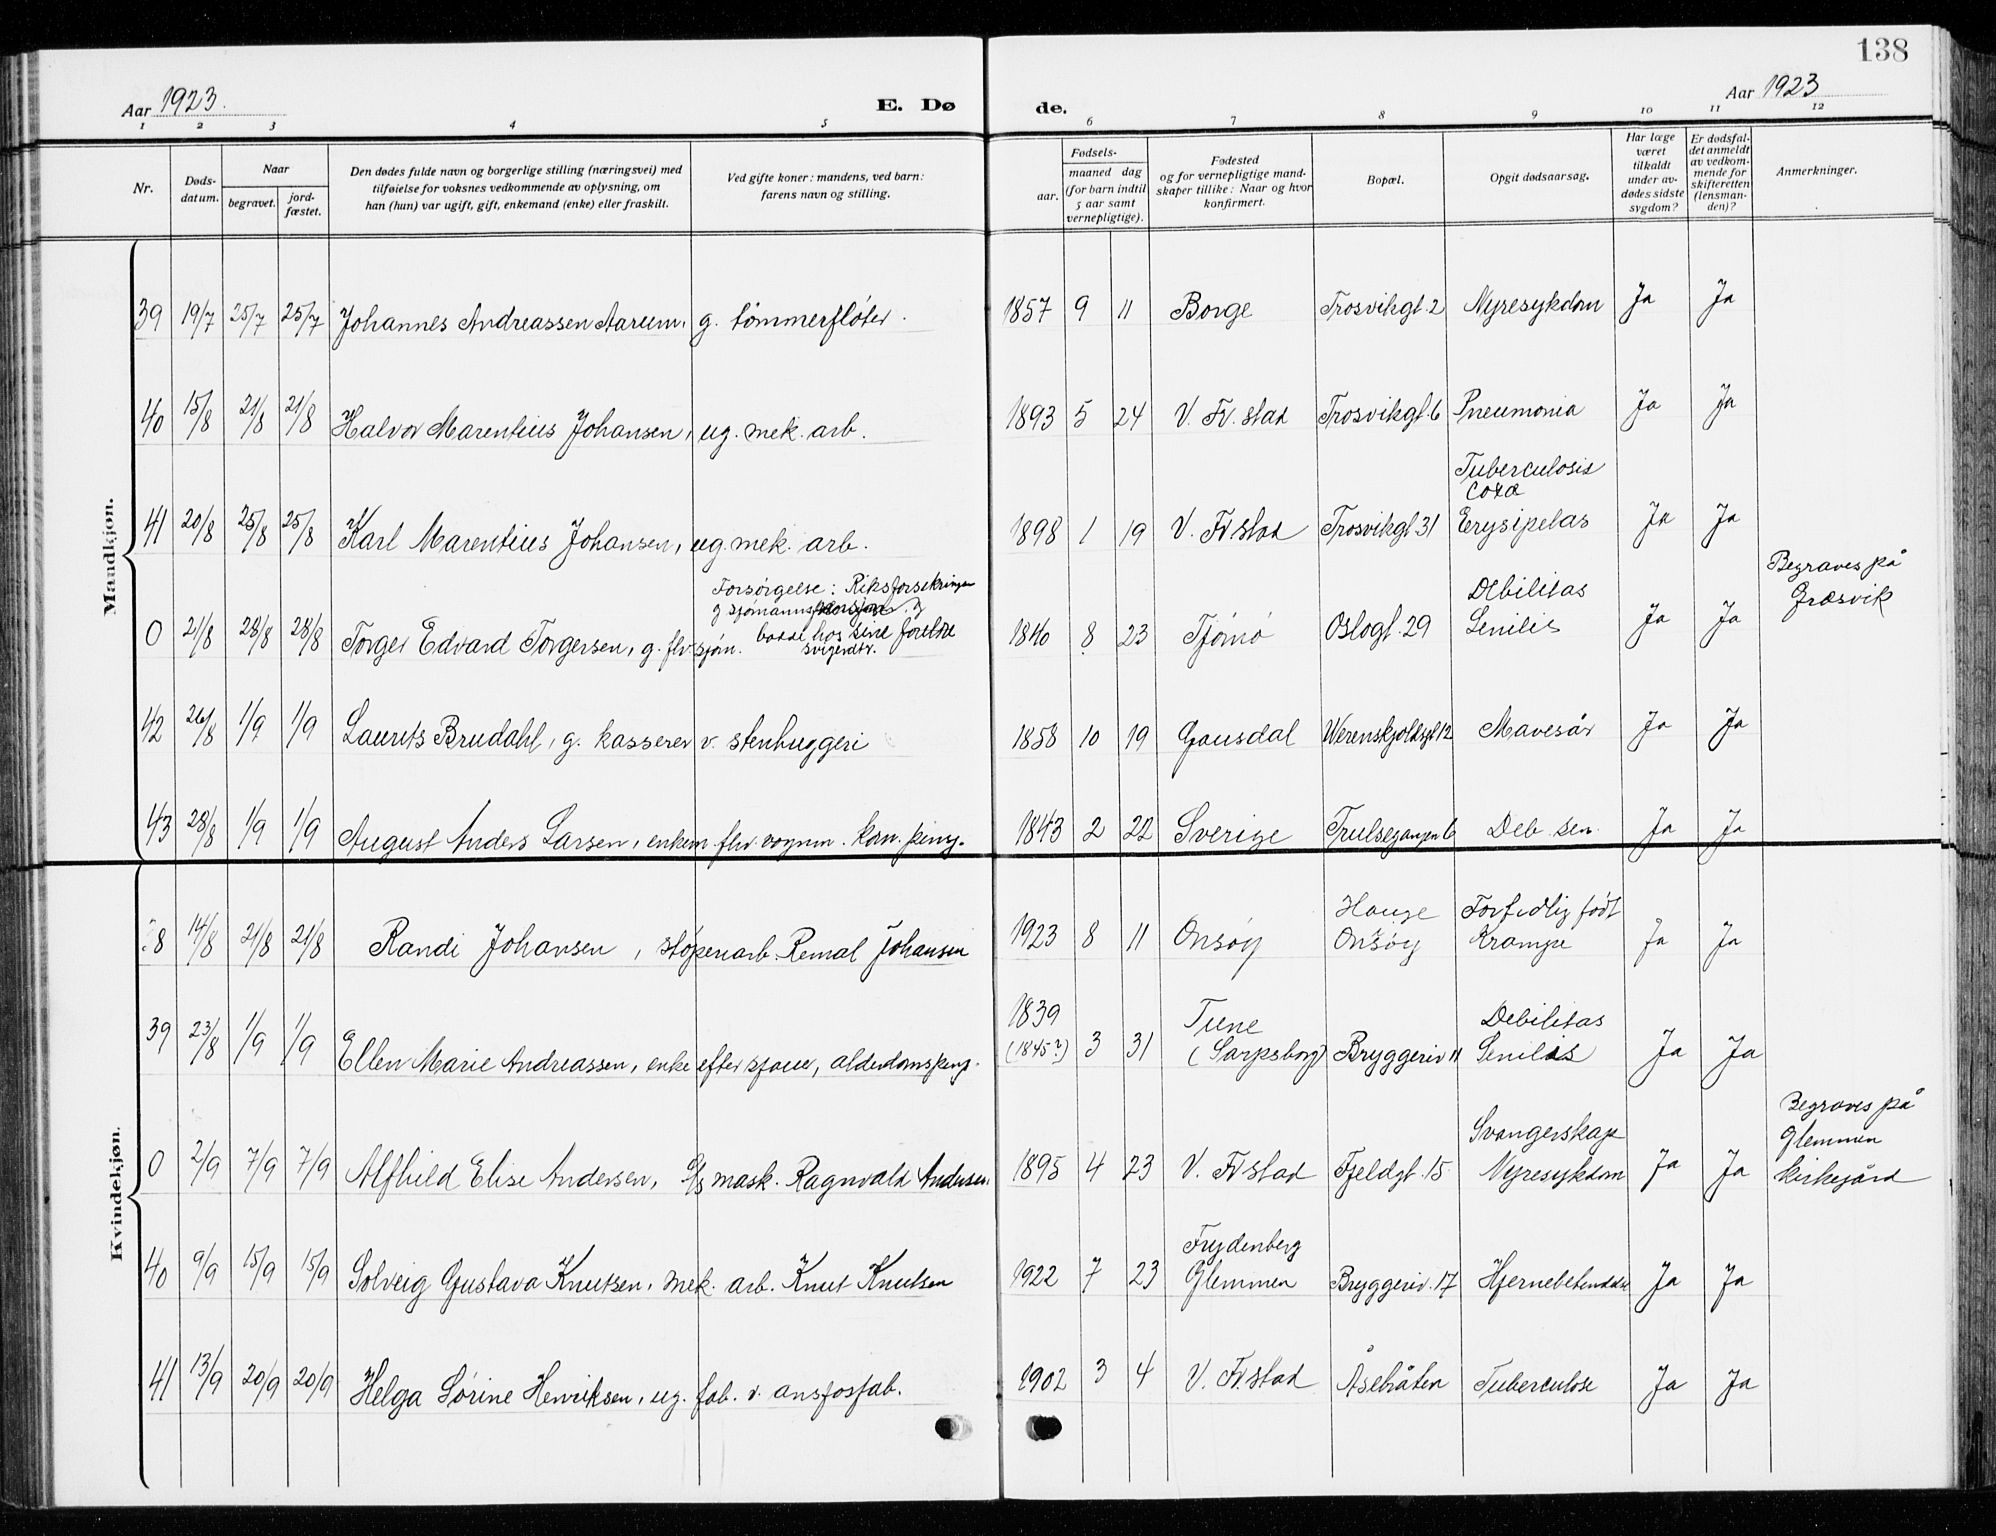 138
Aar 1923.
E. Dø
de.
Aar 1923
1 2 3 4 5 6 7 8 9 10 11 12
Nr.
Døds-
datum.
Naar
begravet.
jord-
fæstet.
Den dødes fulde navn og borgerlige stilling (næringsvei) med
tilføielse for voksnes vedkommende av oplysning, om
han (hun) var ugift, gift, enkemand (enke) eller fraskilt.
Ved gifte koner: mandens, ved barn:
farens navn og stilling.
Fødsels-
aar.
maaned dag
(for barn indtil
5 aar samt
vernepligtige).
Fødested
og for vernepligtige mand-
skaper tillike: Naar og hvor
konfirmert.
Bopæl.
Opgit dødsaarsag.
Har læge
været
tilkaldt
under av-
dødes sidste
sygdom?
Er dødsfal-
det anmeldt
av vedkom-
mende for
skifteretten
(lensman-
den)?
Anmerkninger.
Mandkjøn.
39 19/7 25/7 25/7 Johannes Andreassen Aarum, g. tømmerfløter. 1857 9 11 Borge Trosvikgt. 2 Nyresykdom Ja Ja
40 15/8 21/8 21/8 Halvor Marentius Johansen, ug. mek. arb. 1893 5 24 V. Fr.stad Trosvikgt. 6 Pneumonia Ja Ja
Tuberculosis
coxa
41 20/8 25/8 25/8 Karl Marentius Johansen, ug. mek. arb. 1898 1 19 V. Frstad Trosvikgt. 31 Erysipelas Ja Ja
Forsørgelse: Riksforsikringen
Begraves på
g sjømanns
Debilitas
Græsvik
0 21/8 28/8 28/8 Torger Edvard Torgersen, g. fhv. sjøm. bodde hos sine foreldre 1840 8 23 Tjømø Oslogt. 29 Senilis Ja Ja
svigerdtr.
42 26/8 1/9 1/9 Laurits Brudahl, g. kasserer v. stenhuggeri 1858 10 19 Gausdal Werenskjoldsgt 12 Mavesår Ja Ja
43 28/8 1/9 1/9 August Anders Larsen, enkem. fhv. vognm. kom. peng. 1843 2 22 Sverige Trulsegangen 6 Deb. sen. Ja Ja
Kvindekjøn.
Hauge Forfidlig født
38 14/8 21/8 21/8 Randi Johansen, støpenarb. Johansen 1923 8 11 Onsøy Onsøy Krampe Ja Ja
1839 Tune Debilitas
39 23/8 1/9 1/9 Ellen Marie Andreassen, enke efter sjaue, alderdomspeng. (1845?) 3 31 (Sarpsborg) Bryggeriv 11 Senilis Ja Ja
Begraves på
Svangerskaps Glemmen
0 2/9 7/9 7/9 Alfhild Elise Andersen, g/s mask. Ragnvald Andersen. 1895 4 23 V. Frstad Fjeldgt. 15 Nyresykdom Ja Ja kirkegård
Frydenberg
40 9/9 15/9 15/9 Solveig Gustava Knutsen, mek. arb. Knut Knutsen 1922 7 23 Glemmen Bryggeriv. 17 Hjernebetendelse Ja Ja
41 13/9 20/9 20/9 Helga Sørine Henriksen, ug. fab. v. ansjosfab. 1902 3 4 V. Fr.stad Åsebråten Tuberculose Ja Ja